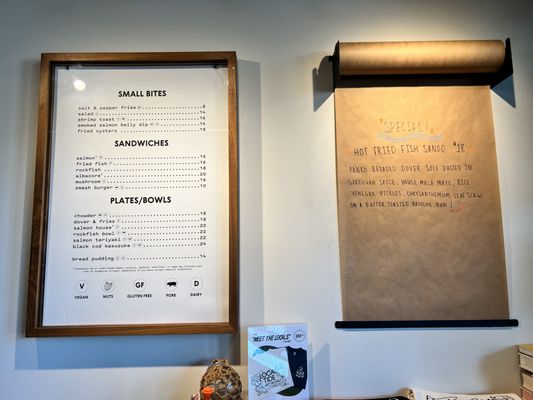 SMALL BITES
salt & pepper fries 8
salad 14
shrimp toast 16
smoked salmon belly dip 14
fried oysters 18
SANDWICHES
salmon* 16
fried fish 16
rockfish 18
albacore* 20
mushroom 16
smash burger 10
PLATES/BOWLS
chowder 18
dover & fries 18
salmon house* 22
rockfish bowl 22
salmon teriyaki 22
black cod kasuzuke 24
bread pudding 14
V
N
GF
D
VEGAN
NUTS
GLUTEN FREE
PORK
DAIRY
SPECIAL!
HOT FRIED FISH SANDO $18
PANKO BREADED DOVER SOLE DUSTED IN
SZECHUAN SPICE, HOUSE MALA MAYO, RICE
VINEGAR PICKLES, CHRYSANTHEMUM LEAF SLAW
ON A BUTTER TOASTED BRIOCHE BUN!
"MEET THE LOCALS"
LOCAL
TIDE